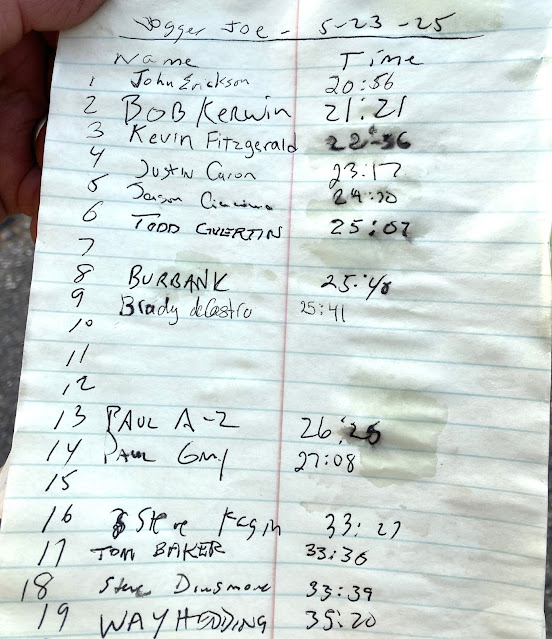 Jogger Joe - 5-23-25
Name Time
1 John Erickson 20:56
2 BOB KERWIN 21:21
3 Kevin Fitzgerald 22:36
4 Justin Caron 23:17
5 Jason
6 TODD GUERTIN 25:07
7
8 BURBANK 25:40
9 Brady deCastro 25:41
10
11
12
13 PAUL A-Z 26:25
14 PAUL 27:08
15
16 Steve 33:27
17 TOM BAKER 33:36
18 Steve Dinsmore 33:39
19 WAY HEDDING 35:20